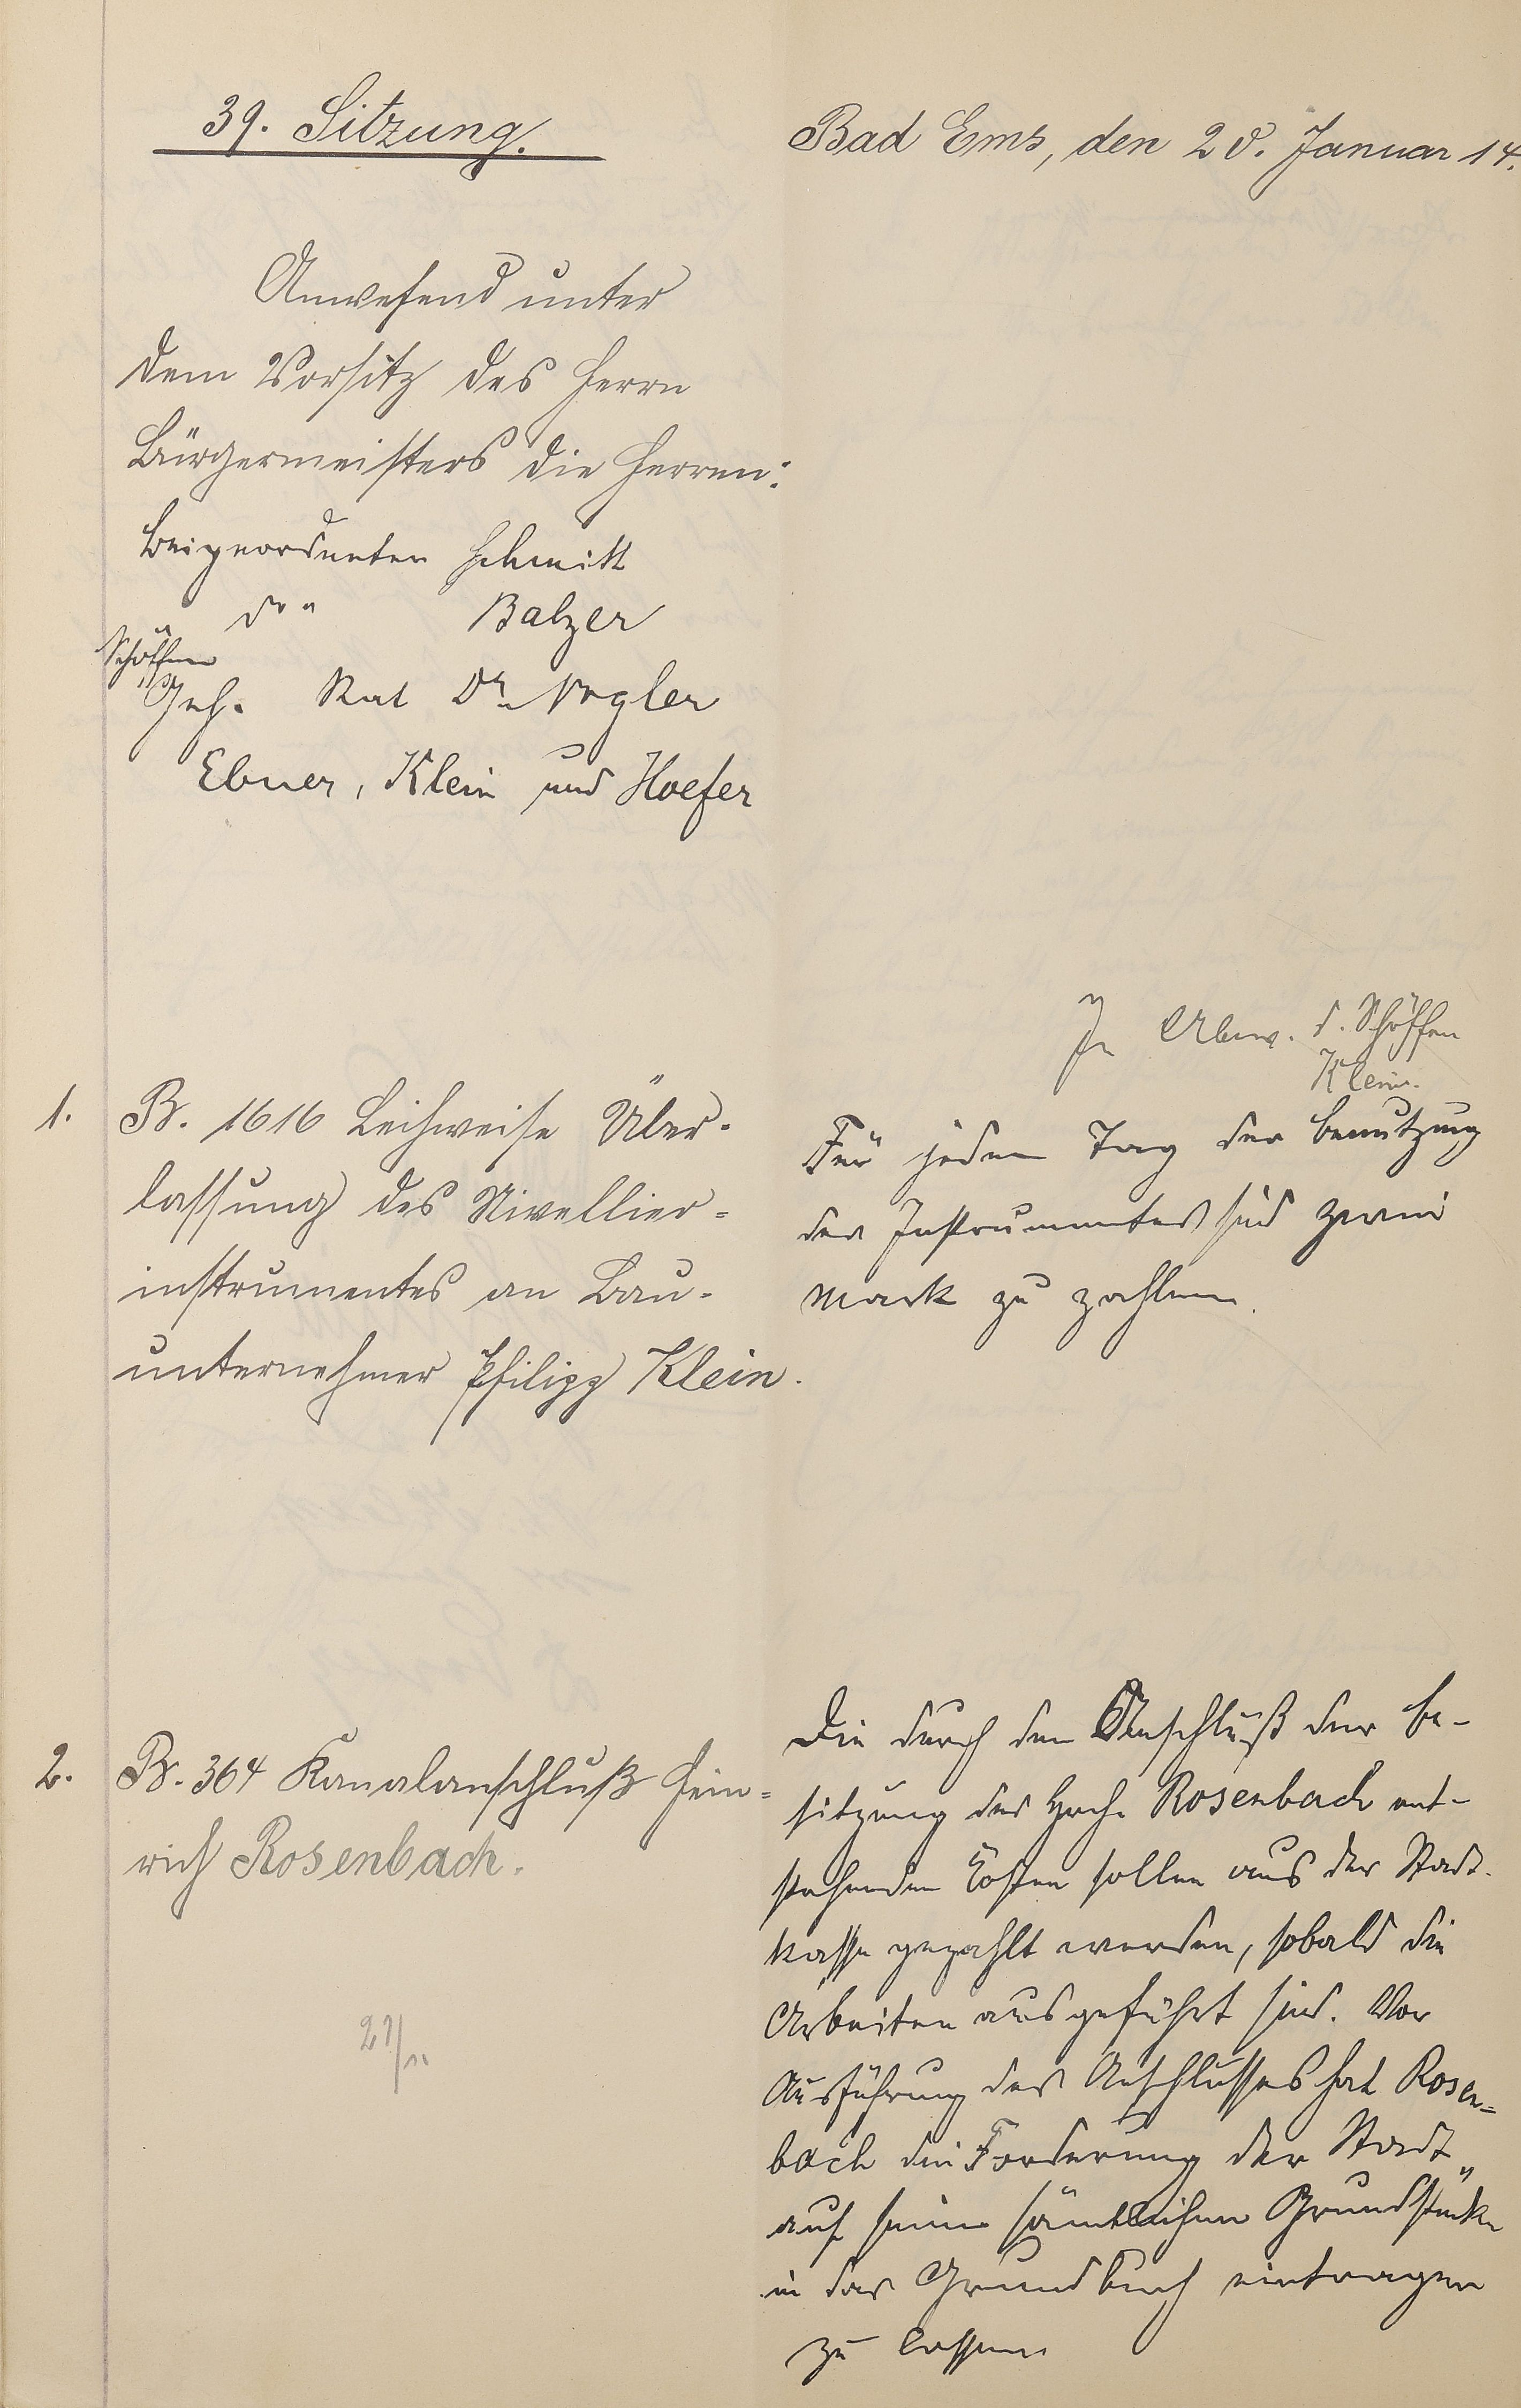 39. Sitzung.
Bad Ems, den 28. Januar 14.
Anwesend unter
dem Vorsitz des Herrn
Bürgermeisters die Herren:
Beigeordneten Schmitt
do " Balzer
Schöffen
Geh. Rat Dr. Vogler
Ebner, Klein und Hoefer
1. B. 1616 Leihweise Über-
lassung des Nivellier-
instrumentes an Bau-
unternehmer Philipp Klein.
In Abw. d. Schöffen
Klein.
Für jeden Tag der Benutzung
des Instrumentes sind zwei
Mark zu zahlen.
2. B. 364 Kanalanschluß Hein-
rich Rosenbach.
27/11
Die durch den Anschluß der Be-
sitzung des Hch. Rosenbach ent-
stehenden Kosten sollen aus der Stadt-
kasse gezahlt werden, sobald die
Arbeiten ausgeführt sind. Vor
Ausführung des Anschlusses hat Rosen-
bach die Forderung der Stadt
auf seine sämtlichen Grundstücke
in das Grundbuch eintragen
zu lassen.